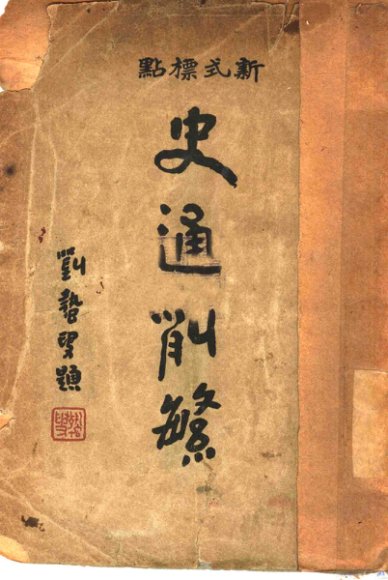 新式標點
史通削繁
劉蟄叟題